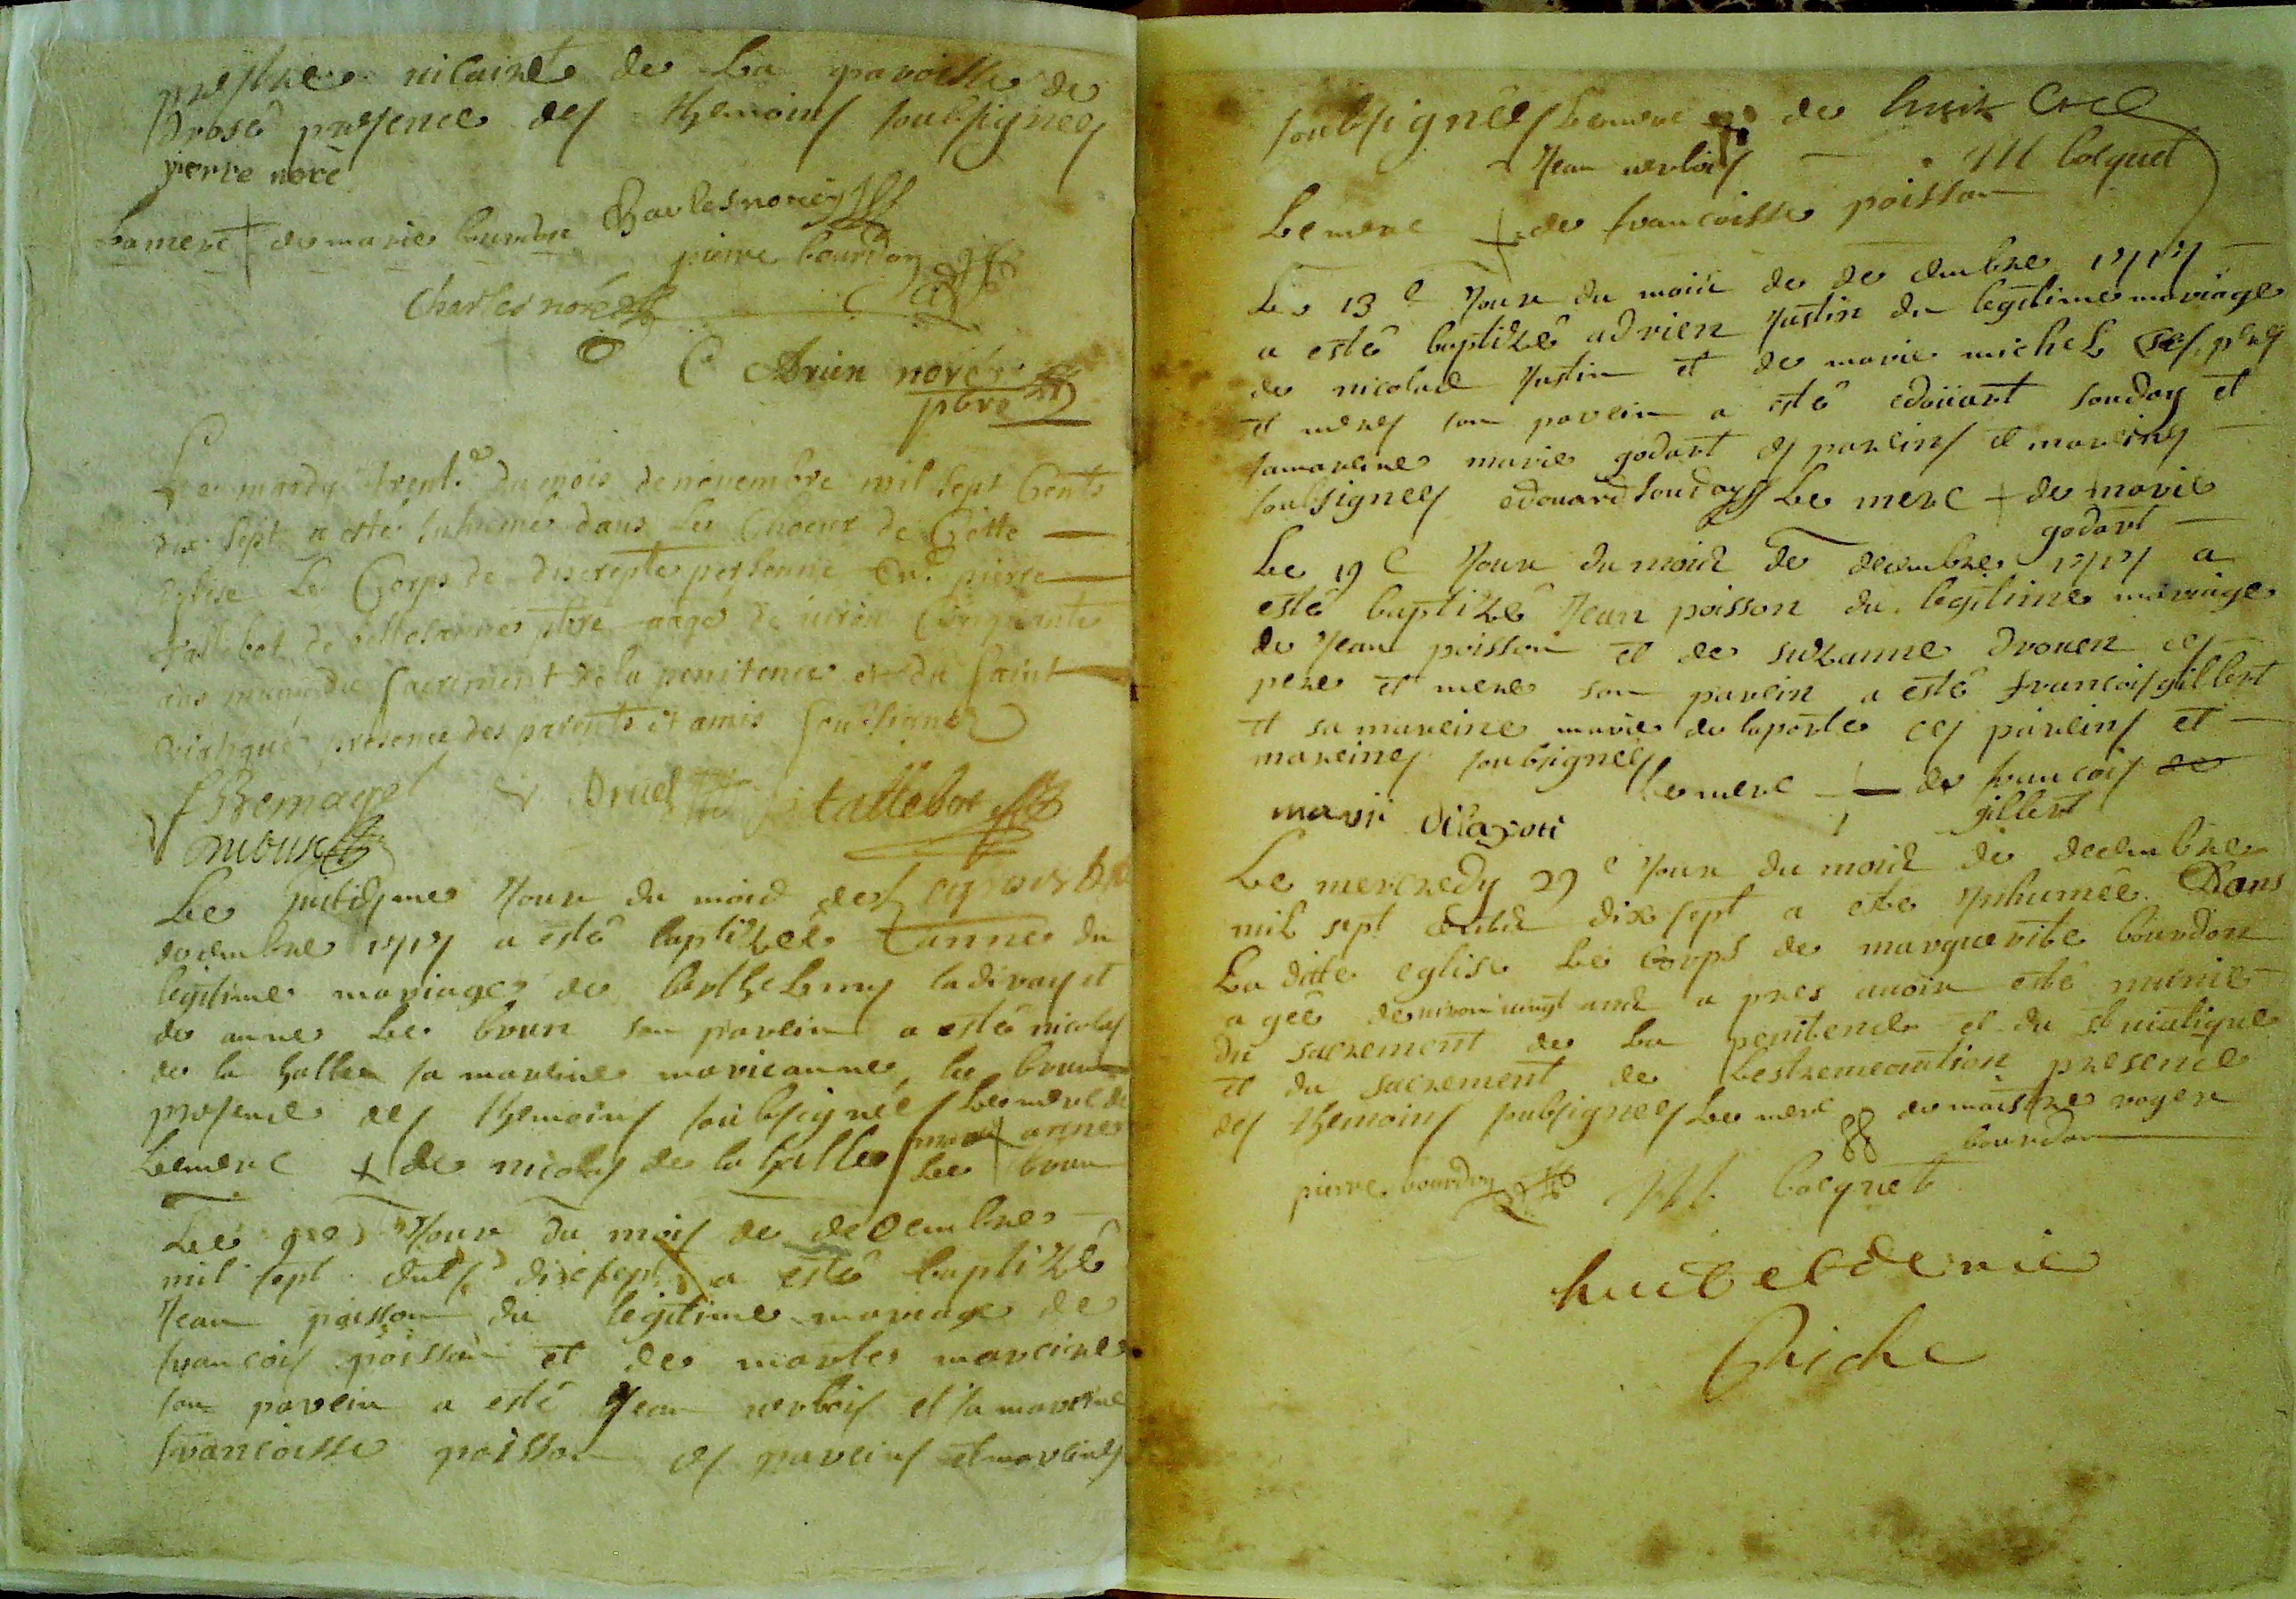 prestre vicaire de La paroisse de
Drosé presence des themoins soubsignes
pierre noré
La merc de marie bourdon Charles norey
pierre bourdon
Charles noré
Adrien noré
pbre
Le mardy trente du mois de novembre mil sept Cents
dix sept a esté inhumé dans Le Choeur de Cette
eglise Le Corps de discrepte personne pierre
tallebot de pbre aagé de viron Cinquante
ans muni du sacrement de la penitence et du saint
viatique presence des parents et amis soubsignez
Druel tallebot
Le huitiesme Jour du mois de
decembre 1717 a esté baptizée anne du
legitime mariage de berthelemy ladiray et
de anne Le brun son parein a esté nicolas
de la halle sa mareine marie anne le brun
presence des themoins soubsignés Le merc de
Le merc + de nicolas de la halle marie anne
Le brun
Le 9e Jour du mois de decembre
mil sept cents dix sept a esté baptizé
Jean poisson du legitime mariage de
francois poisson et de marte mareine
son parein a esté Jean verbois et sa mareine
francoisse poisson ces pareins et mareines
soubsignés Le merc de
Jean verbois M bocquet
Le merc + de francoisse poisson
Le 13e Jour du mois de decembre 1717
a esté baptizé adrien Justin du legitime mariage
de nicolas Justin et de marie michel ses peres
et meres son parein a esté edoüart souday et
sa mareine marie godart ces pareins et mareines
soubsignes edouard souday Le merc + de marie
godart
Le 19e Jour du mois de decembre 1717 a
esté baptizé Jean poisson du legitime mariage
de Jean poisson et de suzanne drouen ces
pere et mere son parein a esté francois gillert
et sa mareine marie de laporte ces pareins et
mareines soubsignes
Le merc + de francois de
gillert
Le mercredy 29e Jour du mois de decembre
mil sept cents dix sept a esté Inhumée Dans
La dite eglise Le Corps de marguerite bourdon
agée de viron vingt ans a pres avoir esté munie
du sacrement de La penitence et du st viatique
et du sacrement de Lestremeontion presence
des themoins soubsignes Le merc de maistre roger
bourdon
pierre bourdon M bocquet